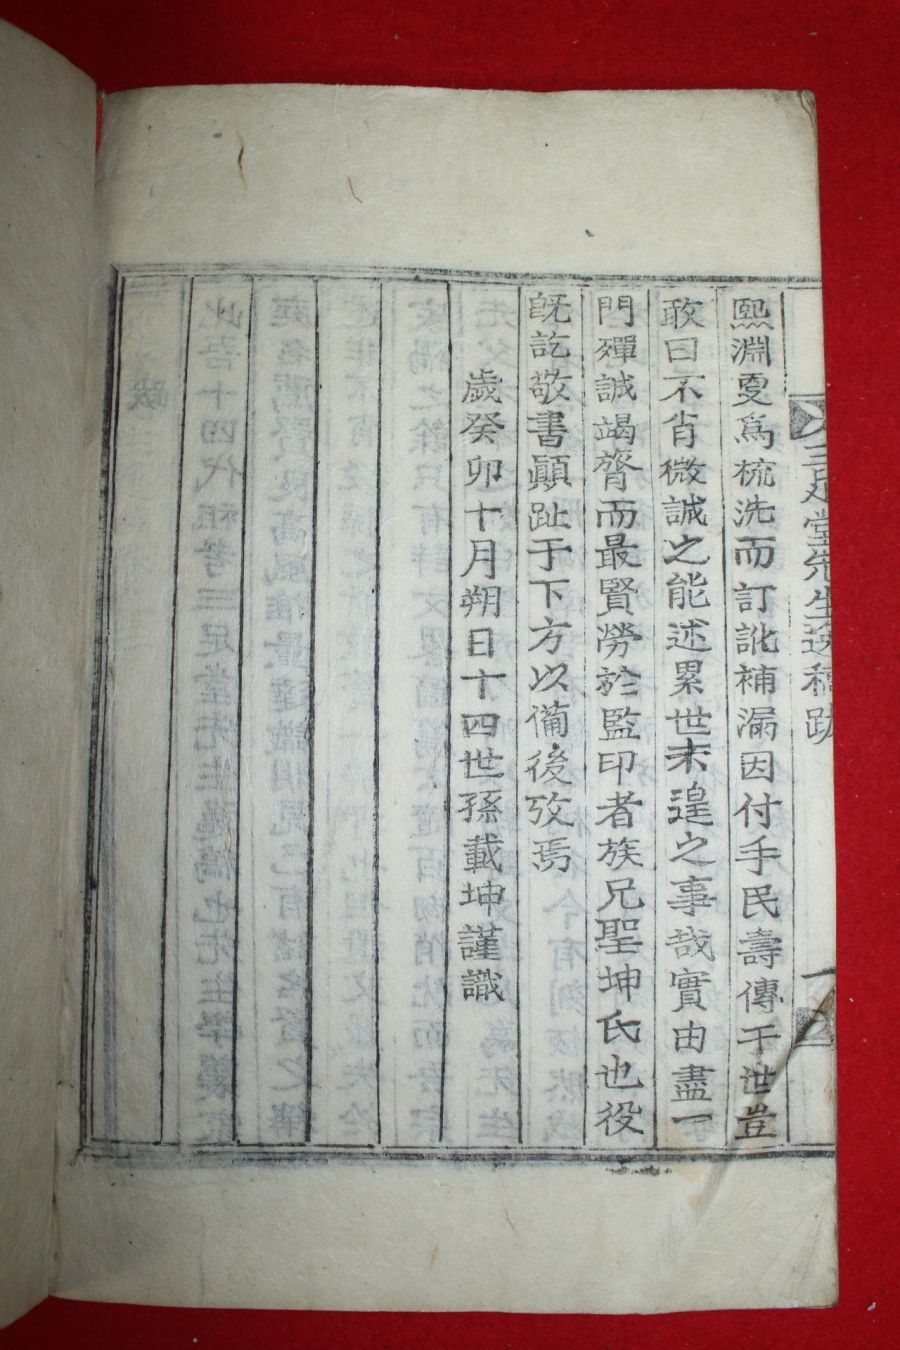 三足堂先生逸稿跋
一
熙淵㪅爲梳洗而訂訛補漏因付手民壽傳于世豈
敢曰不肖微誠之能述累世未遑之事哉實由盡一
門殫誠竭膂而最賢勞於監印者族兄聖坤氏也役
旣訖敬書顚趾于下方以備後攷焉
歲癸卯十月朔日十四世孫載坤謹識